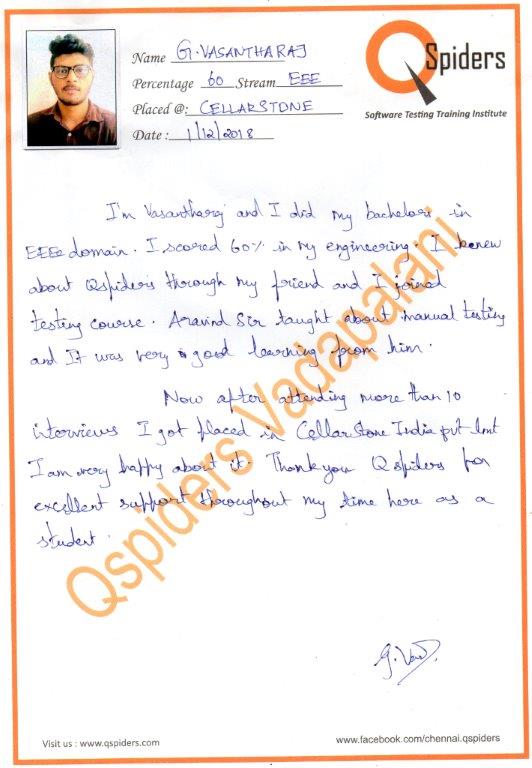 Name G. VASANTHARAJ
Percentage 60 Stream EEE
Placed @: CELLARSTONE
Date : 1/12/2018
QSpiders
Software Testing Training Institute
I'm Vasantharaj and I did my bachelors in
EEE domain. I scored 60% in my engineering. I knew
about Qspiders through my friend and I joined
testing course. Aravind Sir taught about manual testing
and It was very good learning from him.
Now after attending more than 10
interviews I got placed in CellarStone India pvt lmt
I am very happy about it. Thank you Qspiders for
excellent support throughout my time here as a
student.
Qspiders Vadapalani
Visit us : www.qspiders.com
www.facebook.com/chennai.qspiders